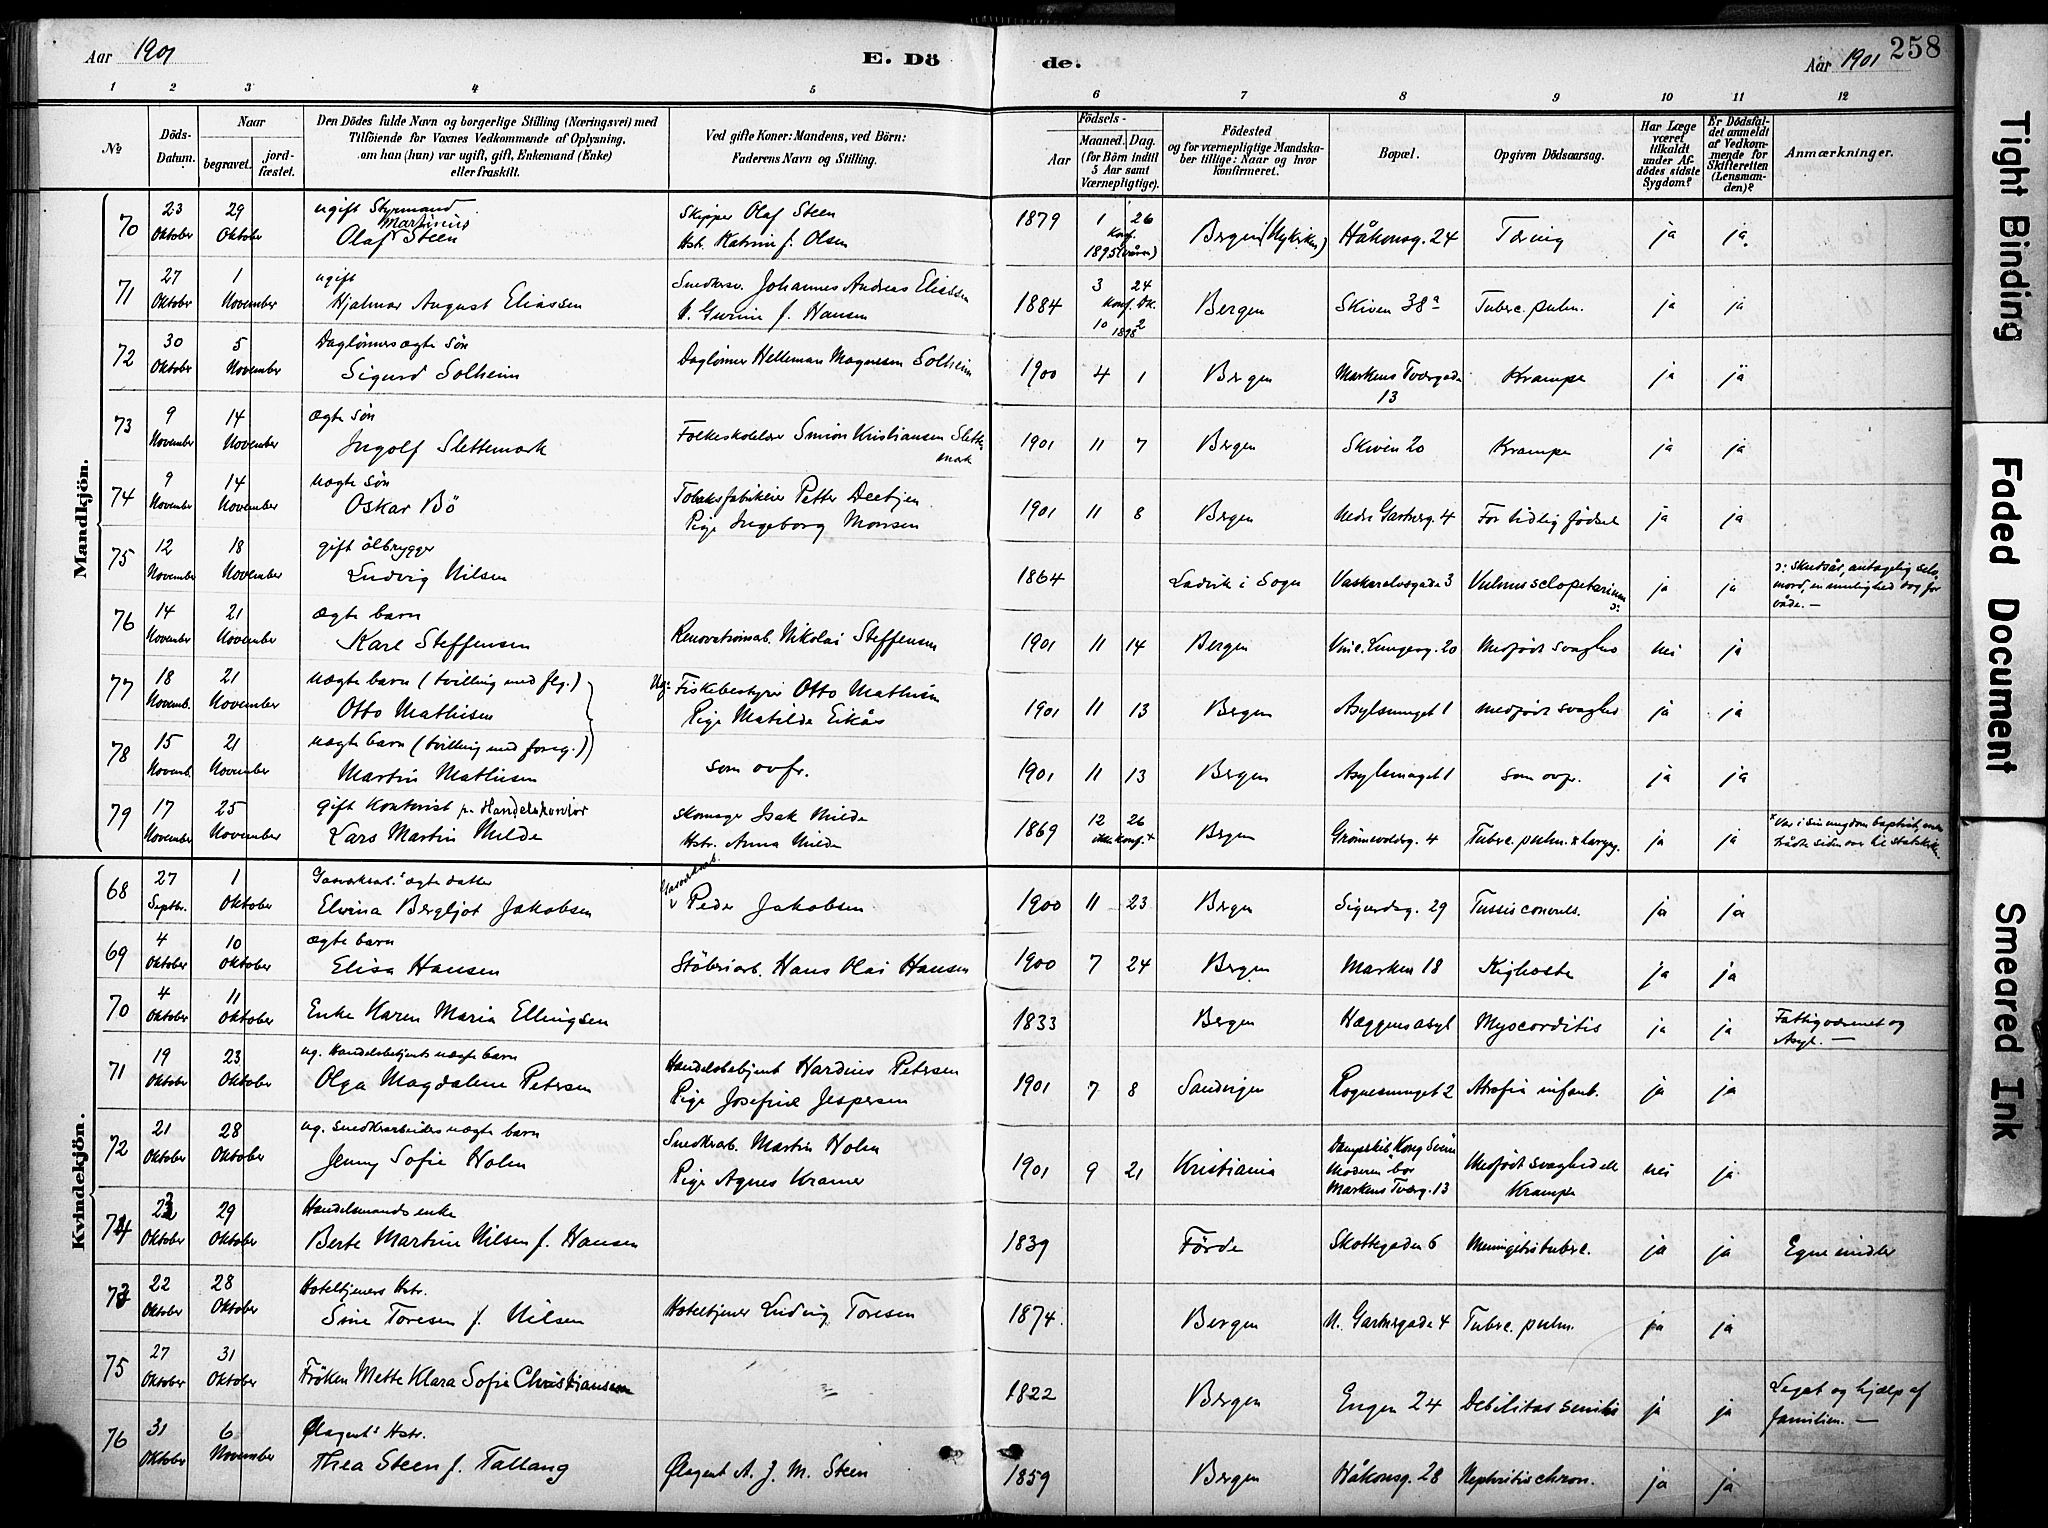 Aar 1901
E. Döde.
Aar 1901
258
1 2 3 4 5 6 7 8 9 10 11 12
No
Döds-Datum.
Naar
begravet.
jordfæstet.
Den Dödes fulde Navn og borgerlige Stilling (Næringsvei) med
Tilföiende for Voxnes Vedkommende af Oplysning,
om han (hun) var ugift, gift, Enkemand (Enke)
eller fraskilt.
Ved gifte Koner: Mandens, ved Börn:
Faderens Navn og Stilling.
Födsels-
Aar
Maaned. Dag.
(for Börn indtil
5 Aar samt
Værnepligtige).
Födested
og for værnepligtige Mandska-
ber tillige: Naar og hvor
konfirmeret.
Bopæl.
Opgiven Dödsaarsag.
Har Læge
været
tilkaldt
under Af-
dödes sidste
Sygdom?
Er Dödsfal-
det anmeldt
af Vedkom-
mende for
Skifteretten
(Lensman-
den)?
Anmærkninger.
Mandkjön.
70 23 Oktober 29 Oktober ugift Styrmand Olaf Martinius Steen Skipper Olaf Steen Hstr. Katrine f. Olsen 1879 1 26 Konf. 1895 (våren) Bergen (Nykirken) Håkonsg. 24 Tæring ja ja
71 27 Oktober 1 November ugift Hjalmar August Eliassen Snedkersv. Johannes Andreas Eliassen f. Hansen 1884 3 24 Konf. Dk. 10 2 1898 Bergen Skiven 38a Tuberc. pulm. ja ja
72 30 Oktober 5 November Daglönners ægte sön Sigurd Solheim Daglönner Helleman Magnesen Solheim 1900 4 1 Bergen Markens Tvergade 13 Krampe ja ja
73 9 November 14 November ægte sön Ingolf Slettemark Folkeskolelær Simon Kristiansen Slettemark 1901 11 7 Bergen Skiven 20 Krampe ja ja
74 9 November 14 November uægte sön Oskar Bö Tobaksfabrikeier Petter Pige Ingeborg Monsen 1901 11 8 Bergen Nedre Gartnerg. 4 For tidlig födsel ja ja
75 12 November 18 November gift ölbrygger Ludvig Nilsen 1864 Ladvik i Sogn Vaskerelvsgade 3 Vulnus sclopetarium ɔ: ja ja ɔ: skudsår, antagelig selvmord, en mulighed dog for våde. —
76 14 November 21 November ægte barn Karl Steffensen Renovationsarb. Nikolai Steffensen 1901 11 14 Bergen Vinc. Lungesg. 20 Medfödt svaghed nei ja
77 18 Novemb. 21 November uægte barn (tvilling med flg.) Otto Mathisen Ug. Fiskebestyrer Otto Mathisen Pige Matilde Eikås 1901 11 13 Bergen Asylsmuget 1 medfödt svaghed ja ja
78 15 Novemb. 21 November uægte barn (tvilling med foreg.) Martin Mathisen som ovfr. 1901 11 13 Bergen Asylsmuget 1 som ovfr. ja ja
79 17 November 25 November gift Kontorist på Handelskontor Lars Martin Milde Skomager Isak Milde Hstr. Anna Milde 1869 12 26 ikke konf. x Bergen Grönnevoldsg. 4 Tuberc. pulm. & laryng. ja ja x Var i sin ungdom baptist, men trådte siden over til statskirken.
Kvindekjön.
68 27 Septbr. 1 Oktober Gasværksarb.s ægte datter Elvina Bergljot Jakobsen Gasværksarb. Peder Jakobsen 1900 11 23 Bergen Sigurdsg. 29 Tussis convuls. ja ja
69 4 Oktober 10 Oktober ægte barn Elisa Hansen Stöberiarb. Hans Olai Hansen 1900 7 24 Bergen Marken 18 Kighoste ja ja
70 4 Oktober 11 Oktober Enke Karen Maria Ellingsen 1833 Bergen Hæggens asyl Myocorditis ja ja Fattigvæsenet og Asyl. —
71 19 Oktober 23 Oktober ug. Handelsbetjents uægte barn Olga Magdalene Petersen Handelsbetjent Hardius Petersen Pige Josefine Jespersen 1901 7 8 Sandvigen Rognesmuget 2 Atrofia infant. ja ja
72 21 Oktober 28 Oktober ug. Snedkerarbeiders uægte barn Jenny Sofie Holm Snedkerarb. Martin Holm Pige Agnes Kramer 1901 9 21 Kristiania Dampskib Kong Moderen bor Markens Tverg. 13 Medfödt svaghed ell Krampe nei ja
74 23 Oktober 29 Oktober Handelsmands enke Berte Martine Nilsen f. Hansen 1839 Förde Skottegaden 6 Meningitis tuberc. ja ja Egne midler
73 22 Oktober 28 Oktober Hoteltjeners Hstr. Sine Toresen f. Nilsen Hoteltjener Ludvig Toresen 1874. Bergen N. Gartnergade 4 Tuberc. pulm. ja ja
75 27 Oktober 31 Oktober Fröken Mette Klara Sofie Christiansen = 1822 Bergen Engen 24 Debilitas senilis ja ja Legat og hjælp af familien. —
76 31 Oktober 6 November Ølagents Hstr. Thea Steen f. Tallang Ølagent A. J. M. Steen 1859 Bergen Håkonsg. 28 Nephritis chron. ja ja
Tight Binding
Faded Document
Smeared Ink